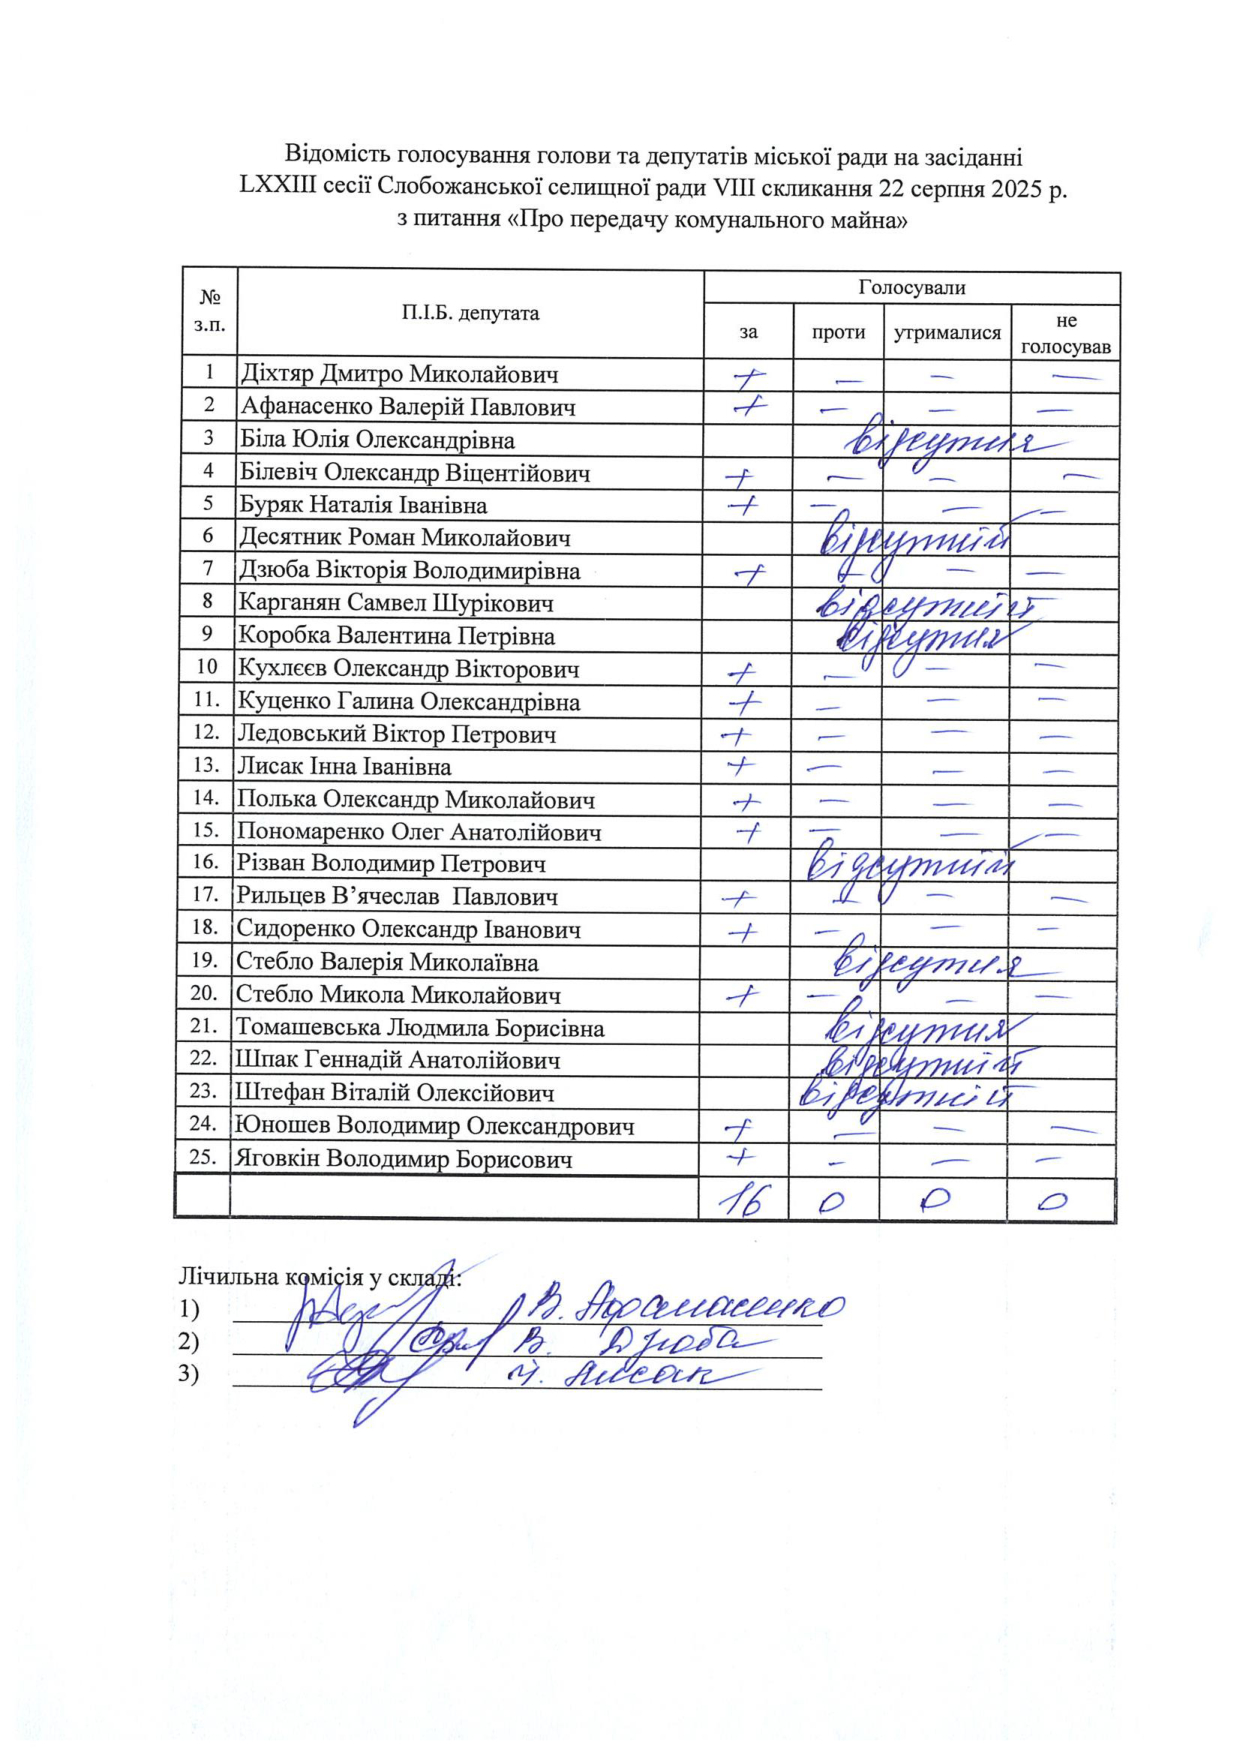 Відомість голосування голови та депутатів міської ради на засіданні
LXXIII сесії Слобожанської селищної ради VIII скликання 22 серпня 2025 р.
з питання «Про передачу комунального майна»
№ з.п. П.І.Б. депутата Голосували
за проти утрималися не голосував
1 Діхтяр Дмитро Миколайович + — — —
2 Афанасенко Валерій Павлович + — — —
3 Біла Юлія Олександрівна відсутня
4 Білевіч Олександр Віцентійович + — — —
5 Буряк Наталія Іванівна + — — —
6 Десятник Роман Миколайович відсутній
7 Дзюба Вікторія Володимирівна + — — —
8 Карганян Самвел Шурікович відсутній
9 Коробка Валентина Петрівна відсутня
10 Кухлєєв Олександр Вікторович + — — —
11. Куценко Галина Олександрівна + — — —
12. Ледовський Віктор Петрович + — — —
13. Лисак Інна Іванівна + — — —
14. Полька Олександр Миколайович + — — —
15. Пономаренко Олег Анатолійович + — — —
16. Різван Володимир Петрович відсутній
17. Рильцев В’ячеслав Павлович + — — —
18. Сидоренко Олександр Іванович + — — —
19. Стебло Валерія Миколаївна відсутня
20. Стебло Микола Миколайович + — — —
21. Томашевська Людмила Борисівна відсутня
22. Шпак Геннадій Анатолійович відсутній
23. Штефан Віталій Олексійович відсутній
24. Юношев Володимир Олександрович + — — —
25. Яговкін Володимир Борисович + — — —
16 0 0 0
Лічильна комісія у складі:
1) В. Афанасенко
2) В. Дзюба
3) І. Лисак